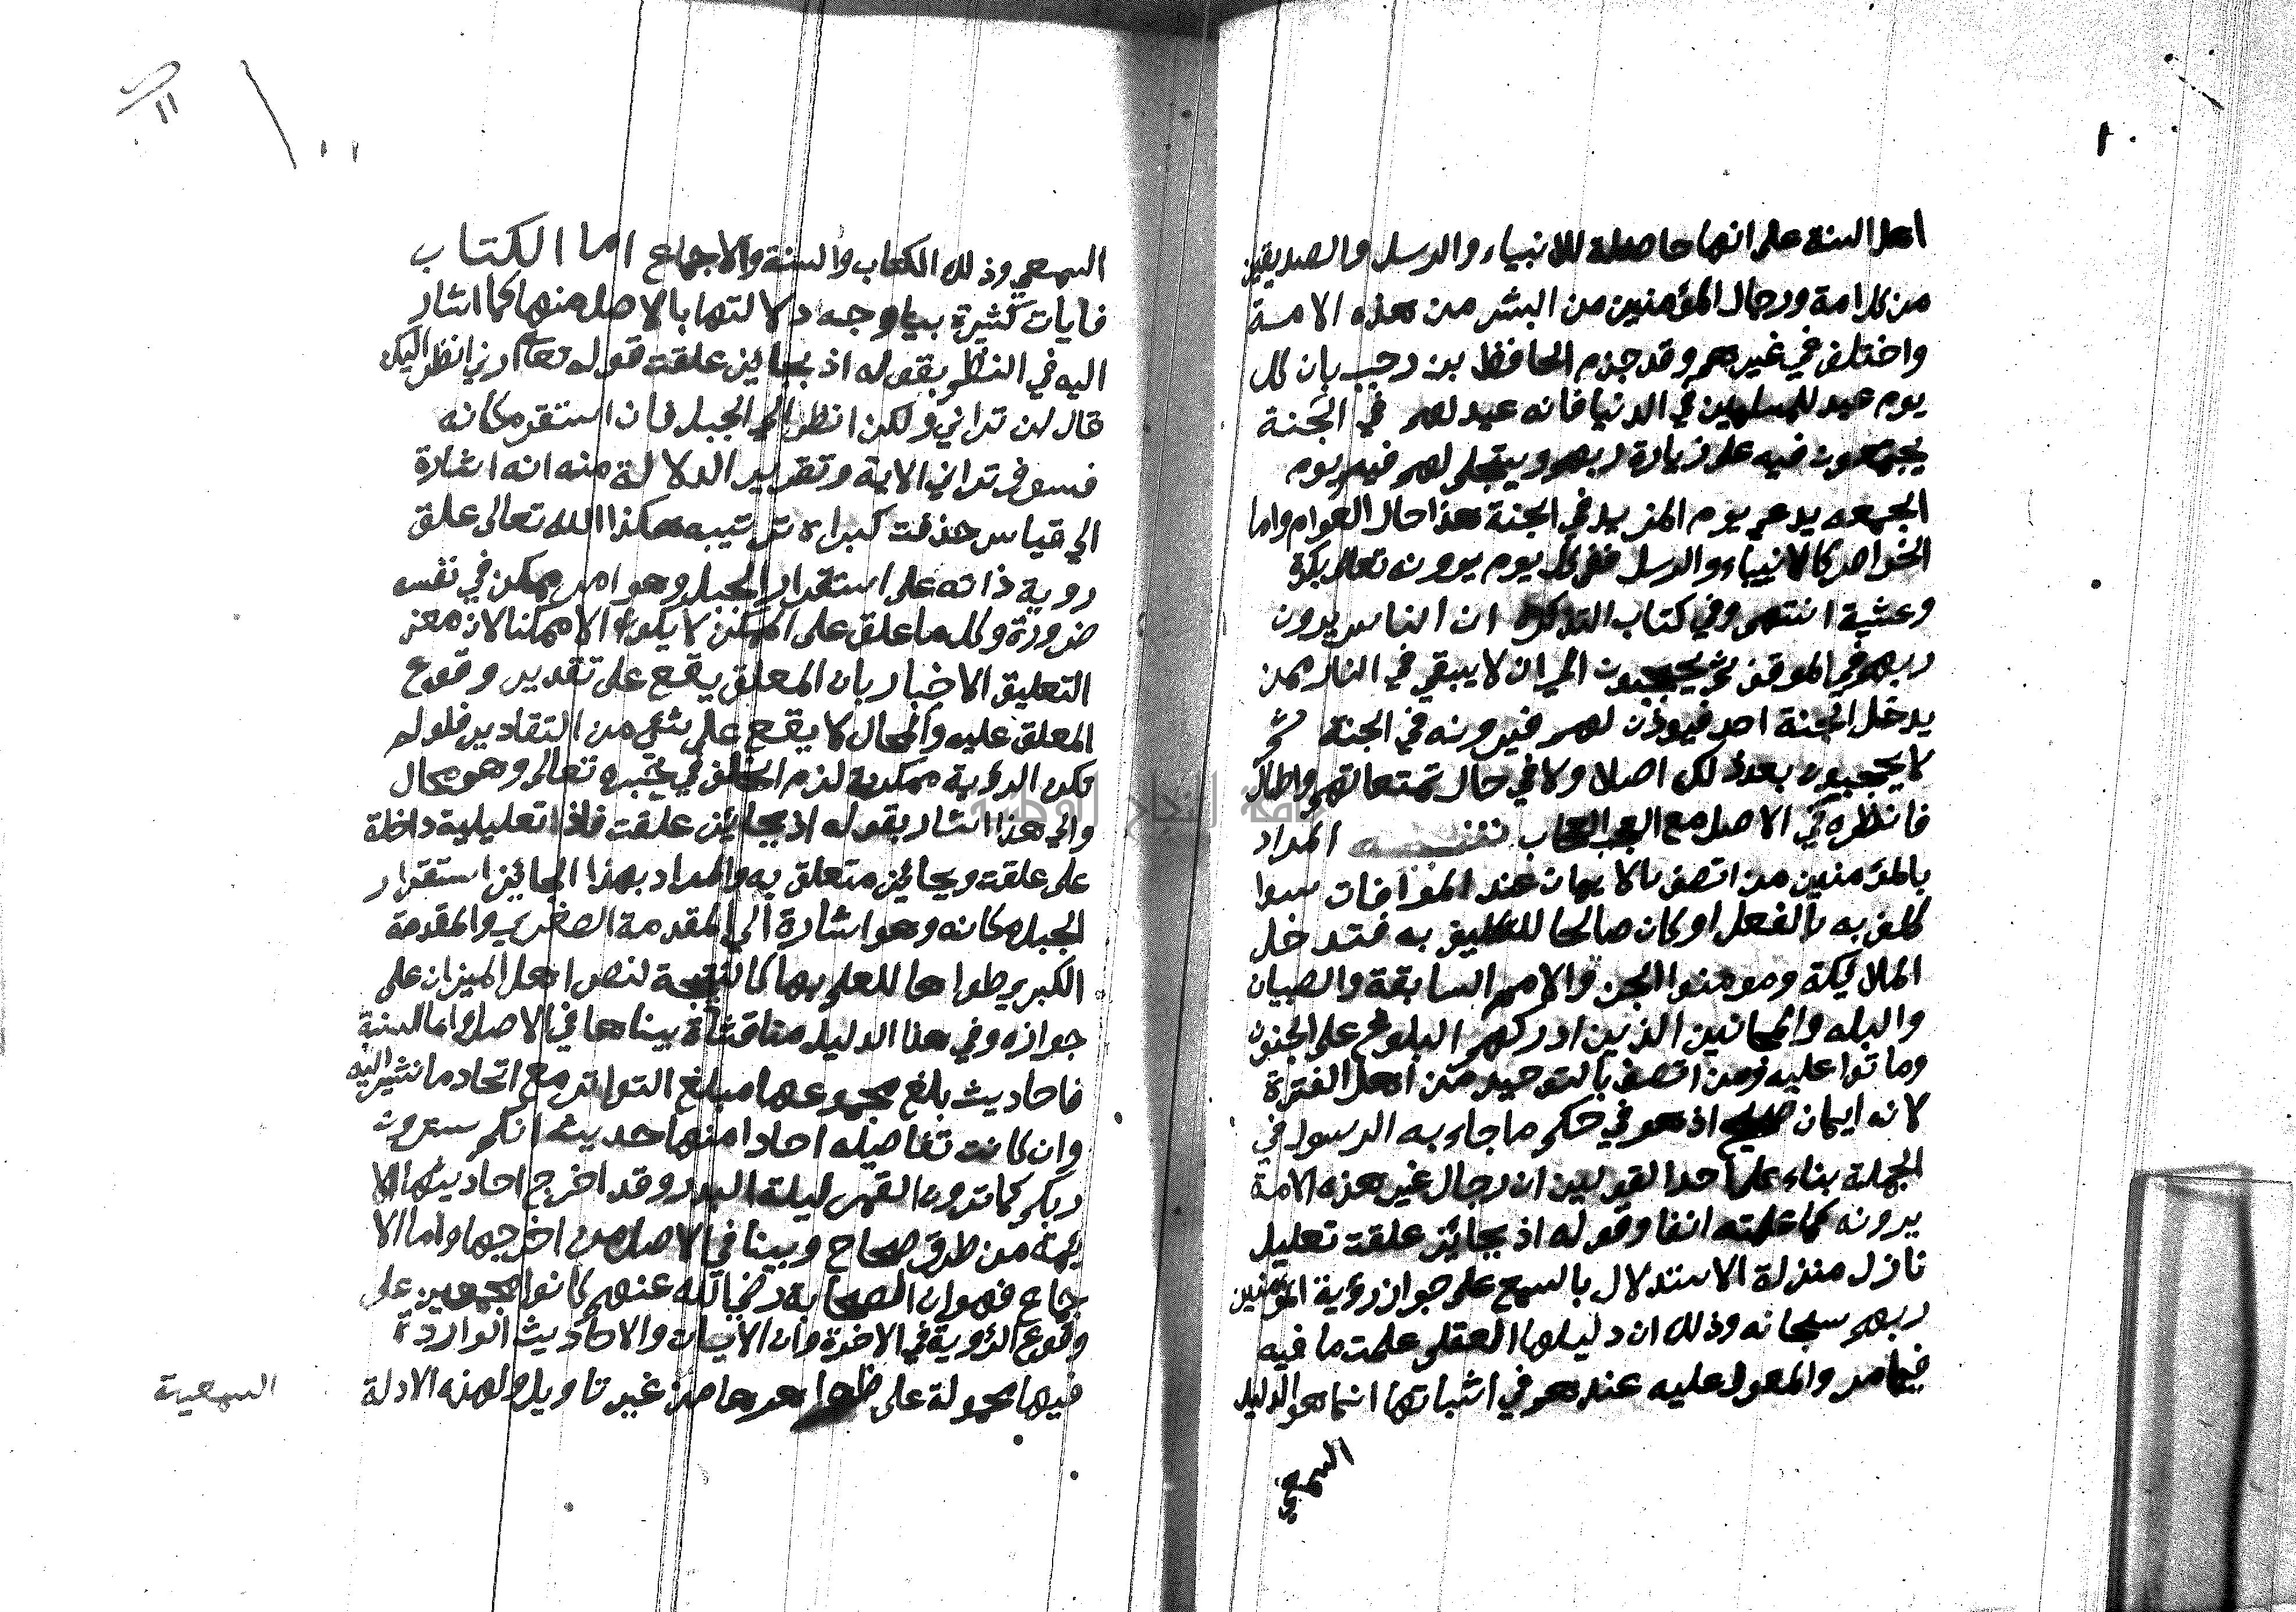 اهل السنة على انها حاصلة للانبياء والرسل والصديقين
من كل امة ورجال المؤمنين من البشر من هذه الامة
واختلف في غيرهم وقد جزم الحافظ بن رجب بان كل
يوم عيد للمسلمين في الدنيا فانه عيد لهم في الجنة
يجتمعون فيه على زيارة ربهم ويتجلى لهم فيه ويوم
الجمعه يدعى يوم المزيد في الجنة هذا حال العوام واما
الخواص كالانبياء والرسل ففي كل يوم يرونه تعالى بكرة
وعشية انتهى وفي كتاب ان الناس يرون
ربهم في الموقف ثم يحجبون الى ان لا يبقى في النار ممن
يدخل الجنة احد فيوذن لهم فيرونه في الجنة ثم
لا يحجبون بعد ذلك اصلا ولا في حال تمتعاتهم واطال
فانظره في الاصل مع العجب العجاب المراد
بالمؤمنين من اتصف بالايمان عند الموافات سوا
كلف به بالفعل او كان صالحا للتكليف به فتدخل
الملائيكة ومومنوا الجن والامم السابقة والصبيان
والبله والمجانين الذين ادركهم البلوغ على الجنون
وماتوا عليه ومن اتصف بالتوحيد من اهل الفترة
لانه ايمان صحيح اذ هو في حكم ما جاء به الرسول في
الجملة بناء على احد القولين ان رجال غير هذه الامة
يرونه كما علمته انفا وقوله اذ بجائز علقت تعليل
نازل منزلة الاستدلال بالسمع على جواز روية المؤمنين
ربهم سبحانه وذلك ان دليلها العقلي علمت ما فيه
فيما مر والمعول عليه عندهم في اثباتها انما هو الدليل
السمعي
السمعي وذلك الكتاب والسنة والاجماع اما الكتاب
فايات كثيرة بينا وجه دلالتها بالاصل منها كما اشار
اليه في النظم بقوله اذ بجائز علقت قوله تعالى ارني انظر اليك
قال لن تراني ولكن انظر الى الجبل فان استقر مكانه
فسوف تراني الاية وتقرير الدلالة منه انه اشارة
الي قياس حذفت كبراه ترتيبه هكذا الله تعالى علق
روية ذاته على استقرار الجبل وهو امر ممكن في نفسه
ضرورة وكل ما علق على الممكن لا يكون الا ممكنا لان معنى
التعليق الاخبار بان المعلق يقع على تقدير وقوع
المعلق عليه والمحال لا يقع على شئ من التقادير فلو لم
تكن الرؤية ممكنة لزم الخلف في خبره تعالى وهو محال
والى هذا اشار بقوله اذ بجائز علقت فاذ تعليلية داخلة
على علقت وبجائز متعلق به والمراد بهذا الجائز استقرار
الجبل مكانه وهو اشارة الي المقدمة الصغرى والمقدمة
الكبرى طواها للعلم بها كالنتيجة لنص اهل الميزان على
جوازه وفي هذا الدليل مناقشاة بيناها في الاصل واما السنة
فاحاديث بلغ مجموعها مبلغ التواتر مع اتحاد ما تشير اليه
وان كانت تفاصيله احادا منها حديث انكم سترون
ربكم كما ترون القمر ليلة البدر وقد اخرج احاديثها الا
يمة من طرق صحاح وبينا في الاصل من اخرجها واما الا
جماع فهو ان الصحابة رضي الله عنهم كانوا مجمعين على
وقوع الرؤية في الاخرة وان الايات والاحاديث الواردة
فيها محمولة على ظواهرها من غير تاويل ولهذه الادلة
السمعية